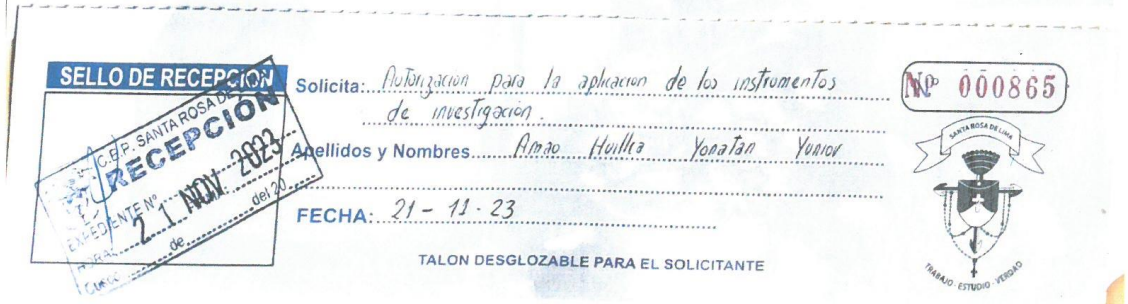 SELLO DE RECEPCIÓN
C.E.P. SANTA ROSA DE
RECEPCIÓN
EXPEDIENTE Nº
21 NOV 2023
HORAS
de del 20
Cusco
Solicita: Autorización para la aplicación de los instrumentos
de investigación.
Apellidos y Nombres Amao Huillca Yonatan Yunior
FECHA: 21 - 11 - 23
TALON DESGLOZABLE PARA EL SOLICITANTE
Nº 000865
SANTA ROSA DE LIMA
TRABAJO - ESTUDIO - VERDAD